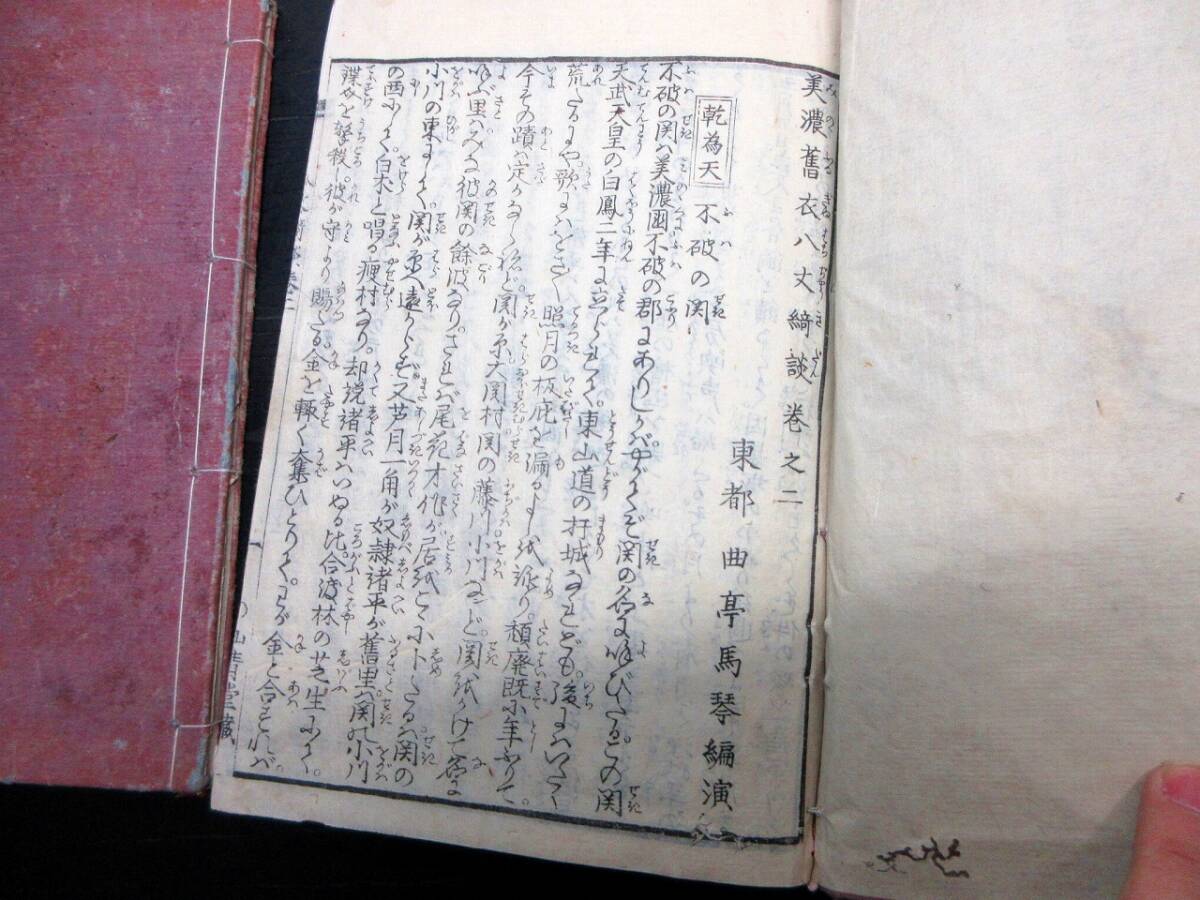 美濃舊衣八丈綺談巻之二
東都 曲亭馬琴編演
乾為天 不破の関
不破の関ハ美濃國不破の郡にありしかバやがてぞ関の名に呼びたるこの関
天武天皇の白鳳二年に立られて東山道の扞城なれども。後にハいたく
荒たるにや。歌にハをさ〳〵照月の板庇を漏るよしを詠り。頽廃既に年ふりて。
今その蹟ハ定かならねど。関が原大関村関の藤川小川など。関をかけて名に
呼ぶ里ハみな彼関の餘波なり。されバ尾花才作が居をこゝに卜たるハ関の
小川の東にて関が原へ遠からず又芦月一角が奴隷諸平が舊里ハ関の小川
の西にて白木と唱る痩村なり。却説諸平ハいぬる比。合渡林の芝生にて。
を撃殺し彼が守より賜たる金を輙く奪ひとりて。わが金と合すれバ